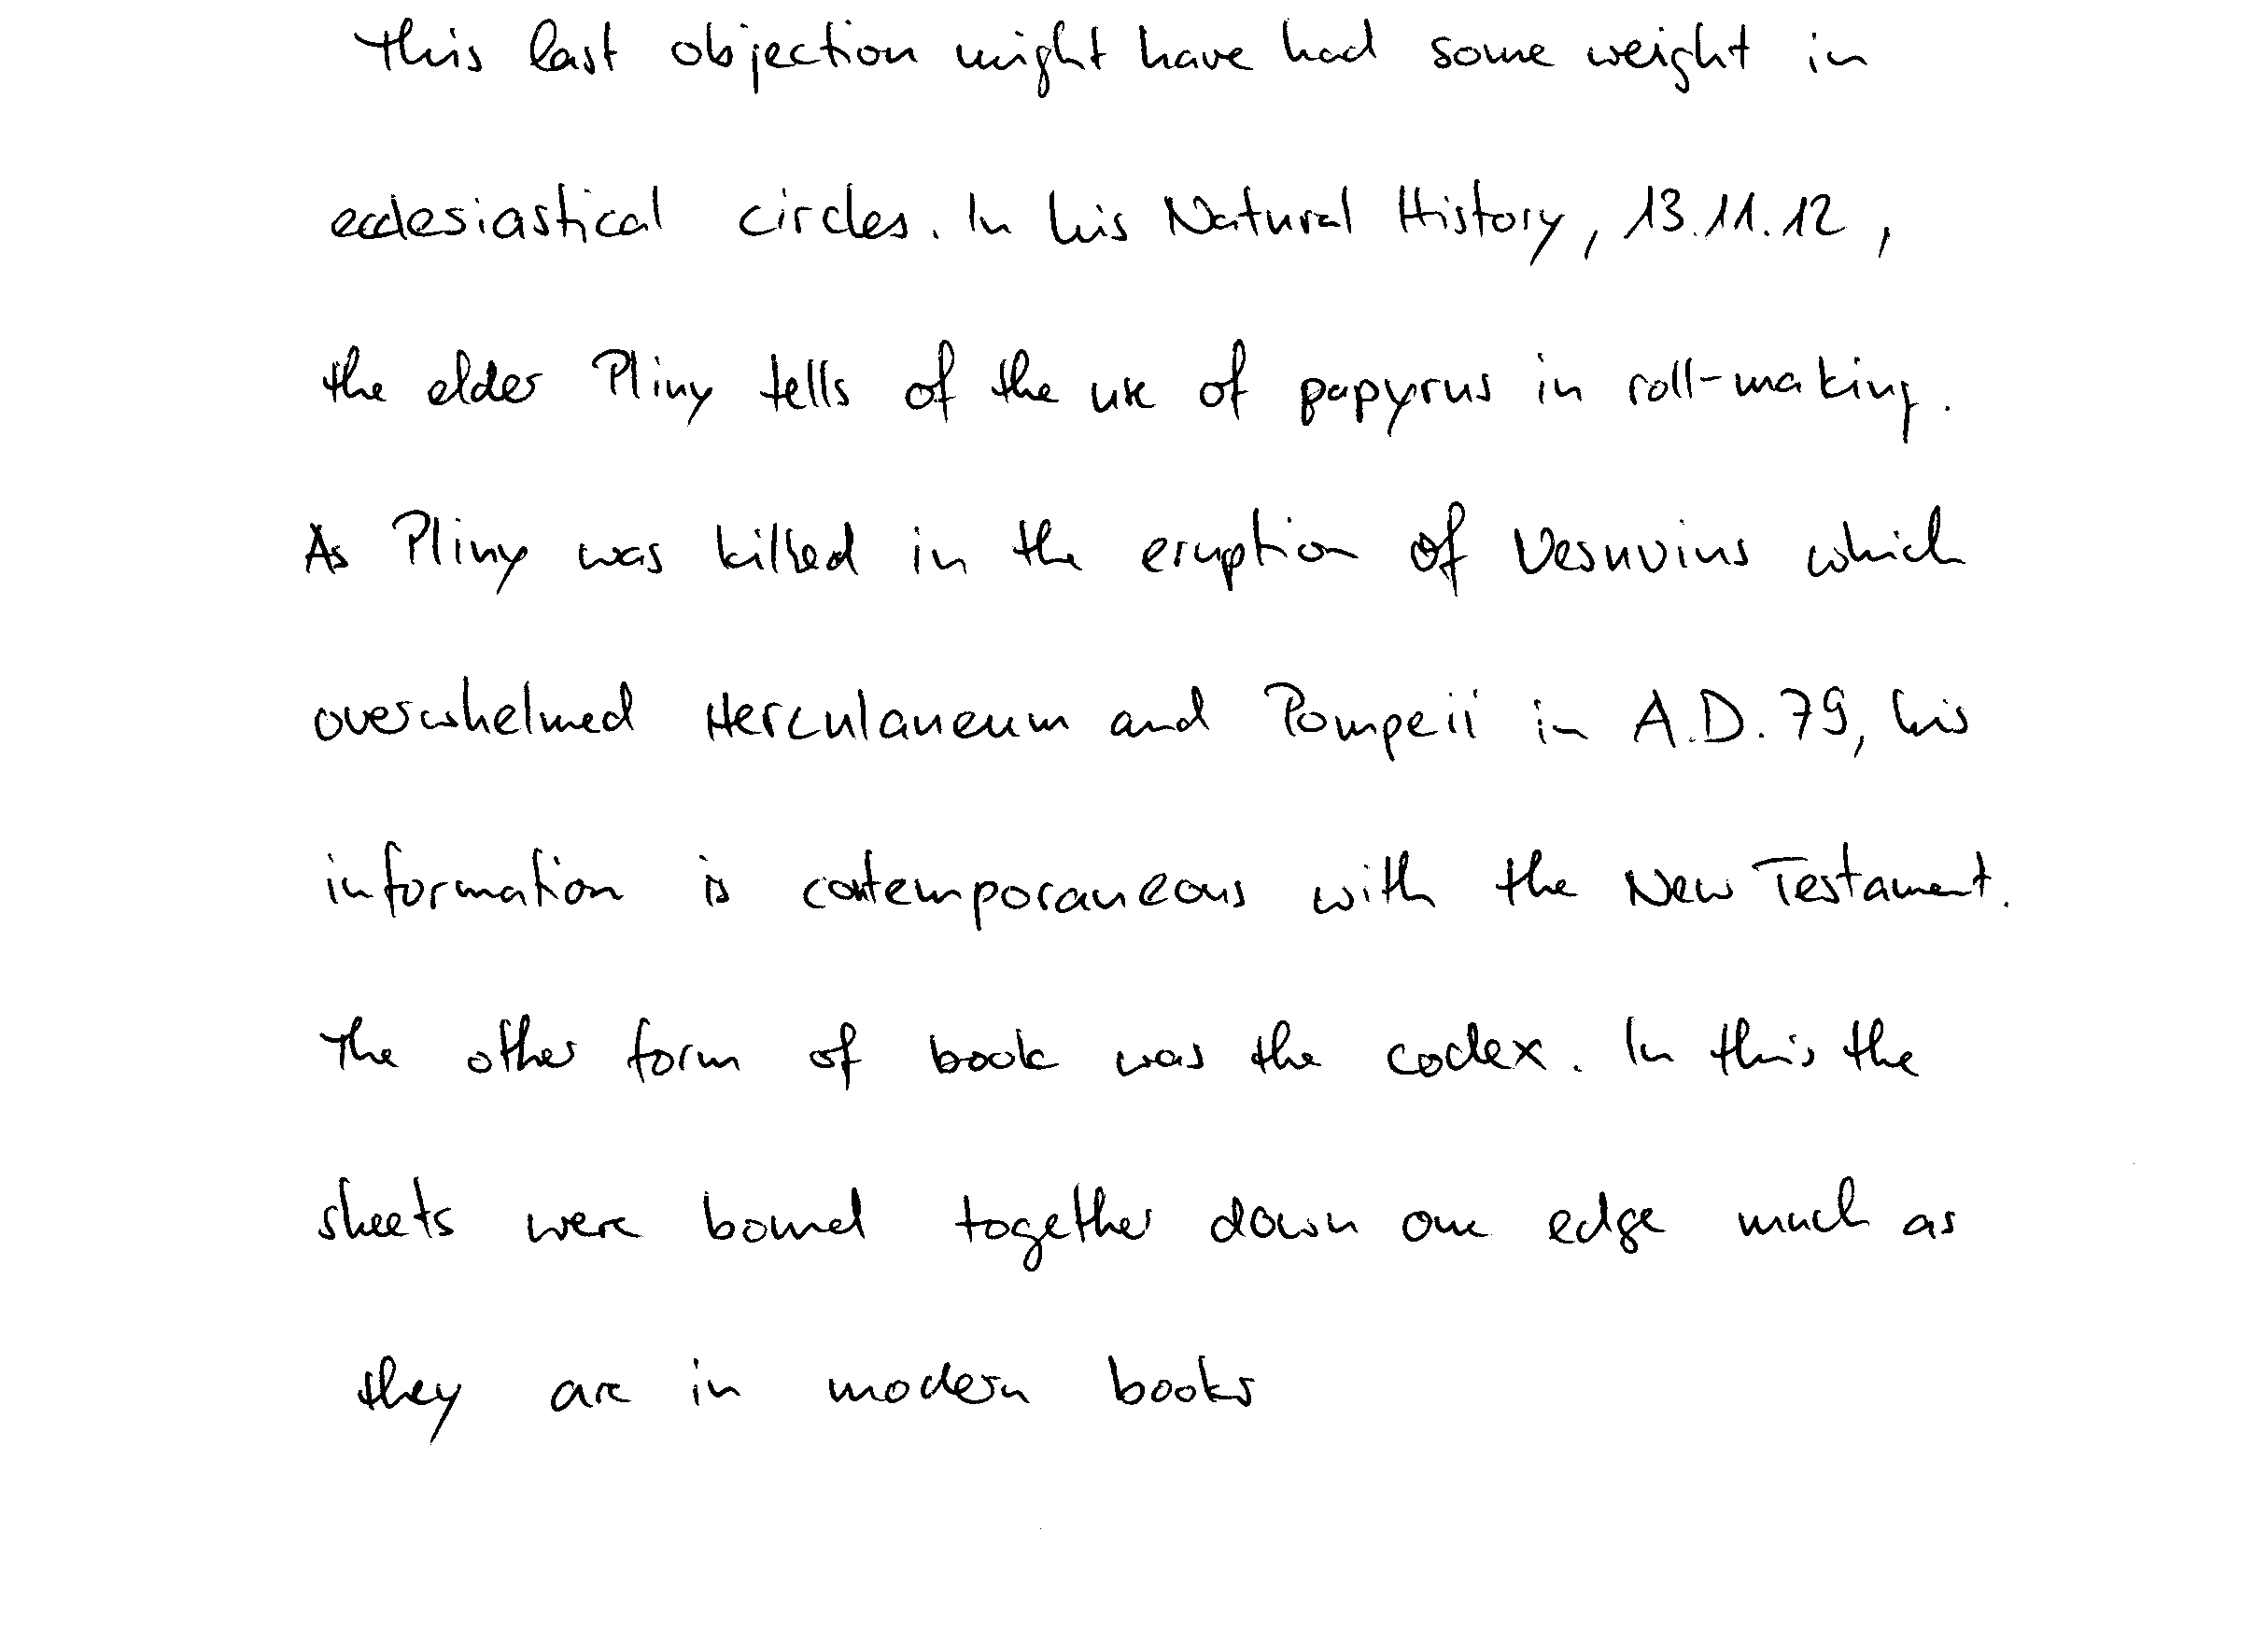 This last objection might have had some weight in
ecclesiastical circles. In his Natural History, 13.11.12,
the elder Pliny tells of the use of papyrus in roll-making.
As Pliny was killed in the eruption of Vesuvius which
overwhelmed Herculaneum and Pompeii in A.D. 79, his
information is contemporaneous with the New Testament.
The other form of book was the codex. In this the
sheets were bound together down one edge much as
they are in modern books